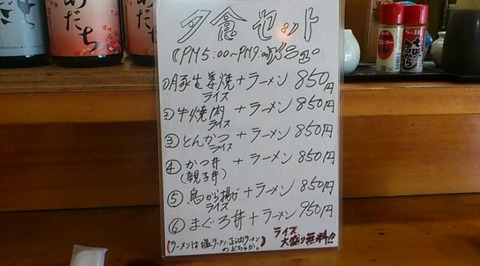 あだち
あだち
夕食セット
(PM5:00〜PM9:00)メニュー
①豚生姜焼+ラーメン 850円
ライス
②牛焼肉+ラーメン 850円
ライス
③とんかつ+ラーメン 850円
ライス
④かつ丼+ラーメン 850円
(親子丼)
⑤鳥から揚げ+ラーメン 850円
ライス
⑥まぐろ丼+ラーメン 950円
(ラーメンは塩ラーメン、正油ラーメン
のどちらか。)
ライス
大盛り無料!!